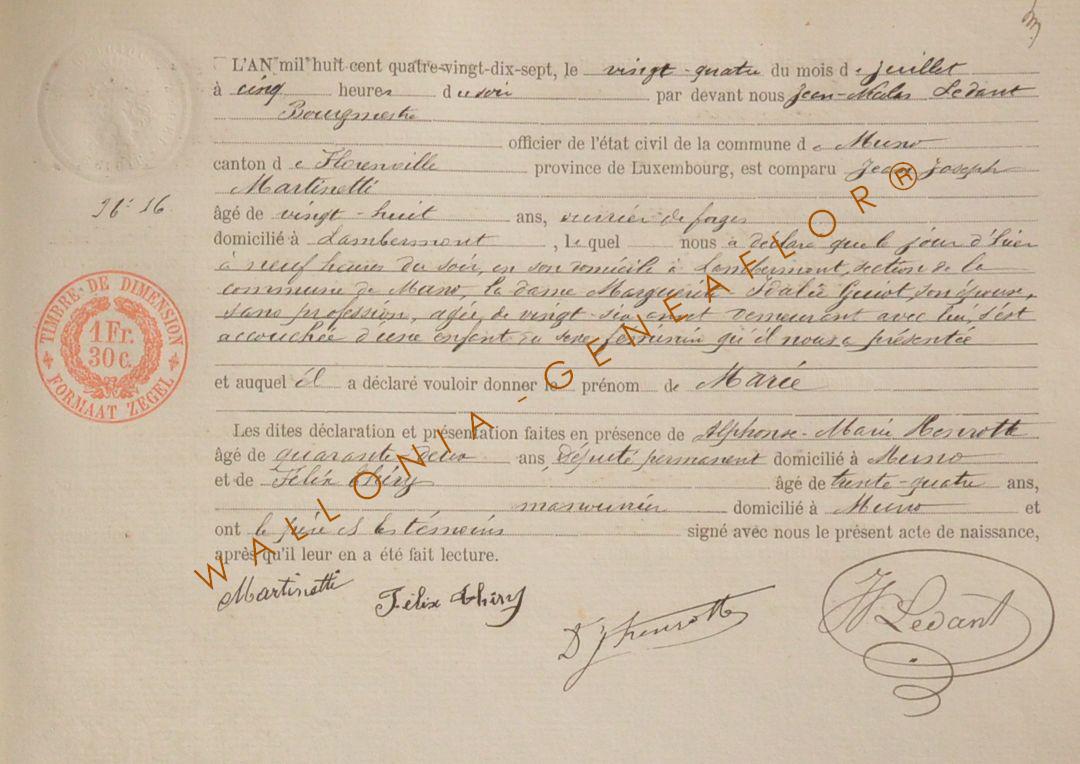 L'AN mil huit cent quatre-vingt-dix-sept, le vingt-quatre du mois de juillet
à cinq heures du soir par devant nous Jean-Nicolas Ledant
Bourgmestre
officier de l'état civil de la commune de Muno
canton de Florenville province de Luxembourg, est comparu Jean Joseph
Martinetti
96. 16.
âgé de vingt-huit ans, ouvrier de forges
domicilié à Lambermont, lequel nous a déclaré que le jour d'hier
à neuf heures du soir, en son domicile à Lambermont, section de la
commune de Muno, la dame Marguerite Idalie Guiot, son épouse,
sans profession, agée de vingt-six ans et demeurant avec lui, s'est
accouchée d'une enfant du sexe féminin qu'il nous a présentée
et auquel il a déclaré vouloir donner le prénom de Marie
Les dites déclaration et présentation faites en présence de Alphonse-Marie Henrotte
âgé de quarante-deux ans, député permanent domicilié à Muno
et de Félix Théry âgé de trente-quatre ans,
manouvrier domicilié à Muno et
ont le père et les témoins signé avec nous le présent acte de naissance,
après qu'il leur en a été fait lecture.
Martinetti Félix Théry Dr Henrotte Ledant
TIMBRE DE DIMENSION
1 Fr.
30 c.
FORMAAT ZEGEL
WALLONIA-GENEAFLOR®